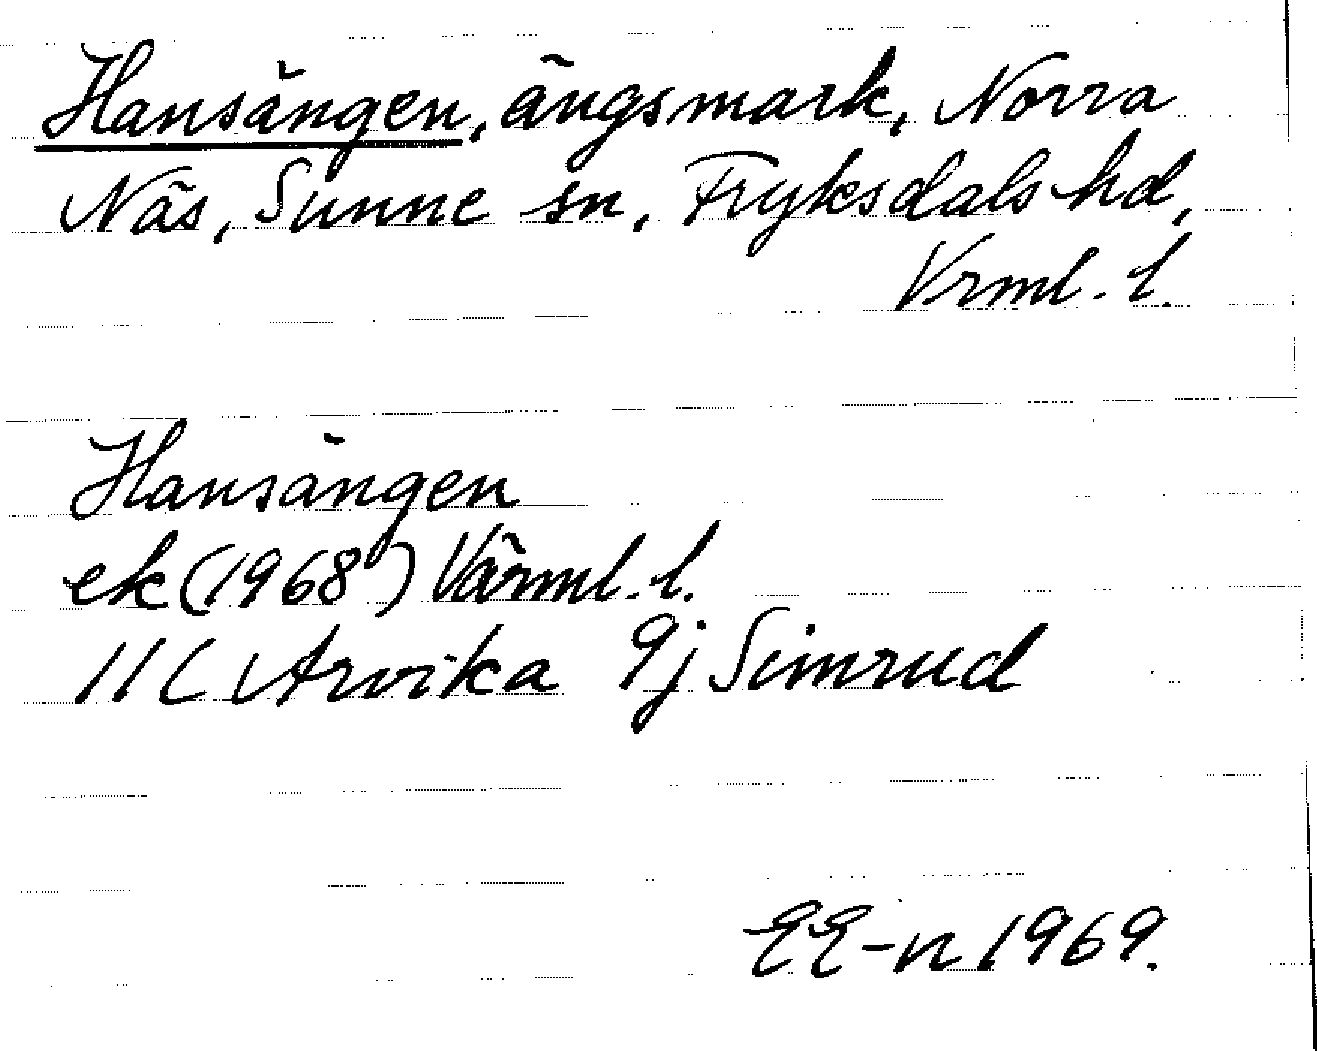 Hansängen, ängsmark, Norra
Näs, Sunne sn, Fryksdals hd,
Vrml. l.
Hansängen
ek (1968) Värml. l.
11C Arvika 9j Simrud
EE-n 1969.